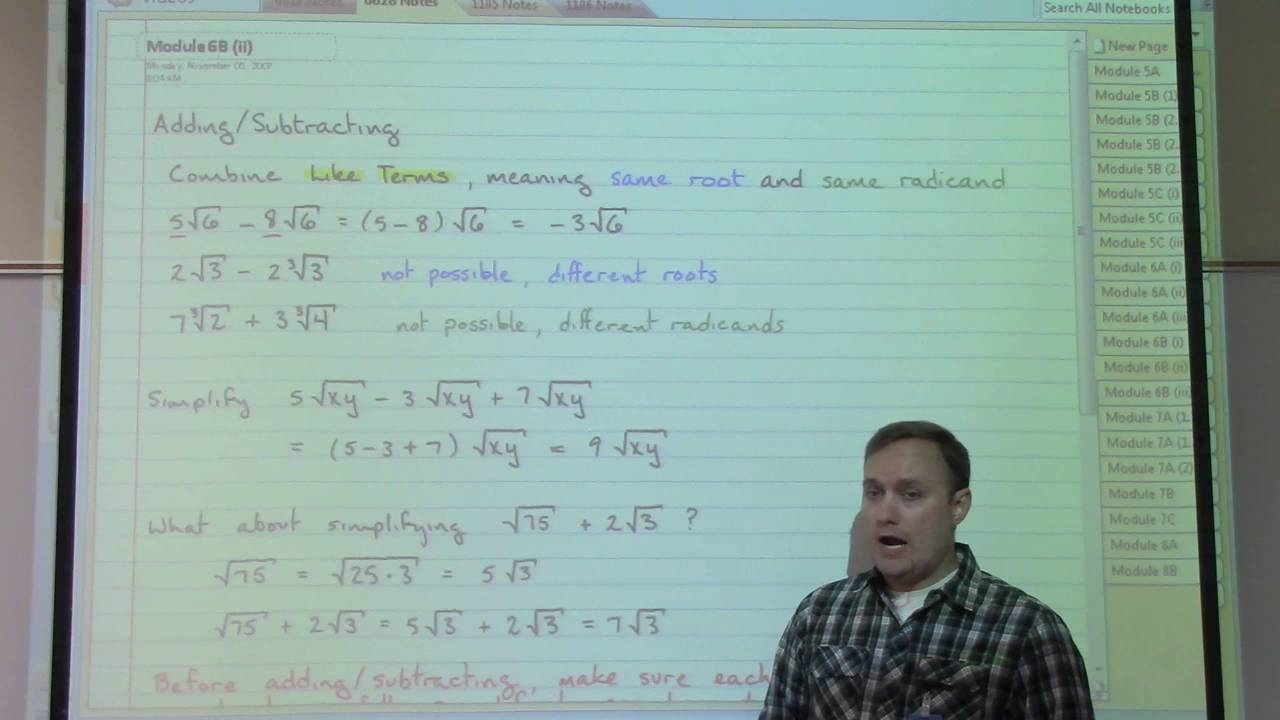 0028 Notes
1105 Notes
1106 Notes
Search All Notebooks
Module 6B (ii)
Adding/Subtracting
Combine Like Terms, meaning same root and same radicand
5√6 - 8√6 = (5-8)√6 = -3√6
2√3 - 2∛3 not possible, different roots
7∛2 + 3∛4 not possible, different radicands
Simplify 5√xy - 3√xy + 7√xy
= (5-3+7)√xy = 9√xy
What about simplifying √75 + 2√3 ?
√75 = √25·3 = 5√3
√75 + 2√3 = 5√3 + 2√3 = 7√3
Before adding/subtracting, make sure each
New Page
Module 5A
Module 5B (1)
Module 5B (2.
Module 5B (2.
Module 5B (2.
Module 5C (i)
Module 5C (ii)
Module 5C (iii
Module 6A (i)
Module 6A (ii)
Module 6A (iii
Module 6B (i)
Module 6B (ii)
Module 6B (iii)
Module 7A (1.
Module 7A (1.
Module 7A (2)
Module 7B
Module 7C
Module 8A
Module 8B